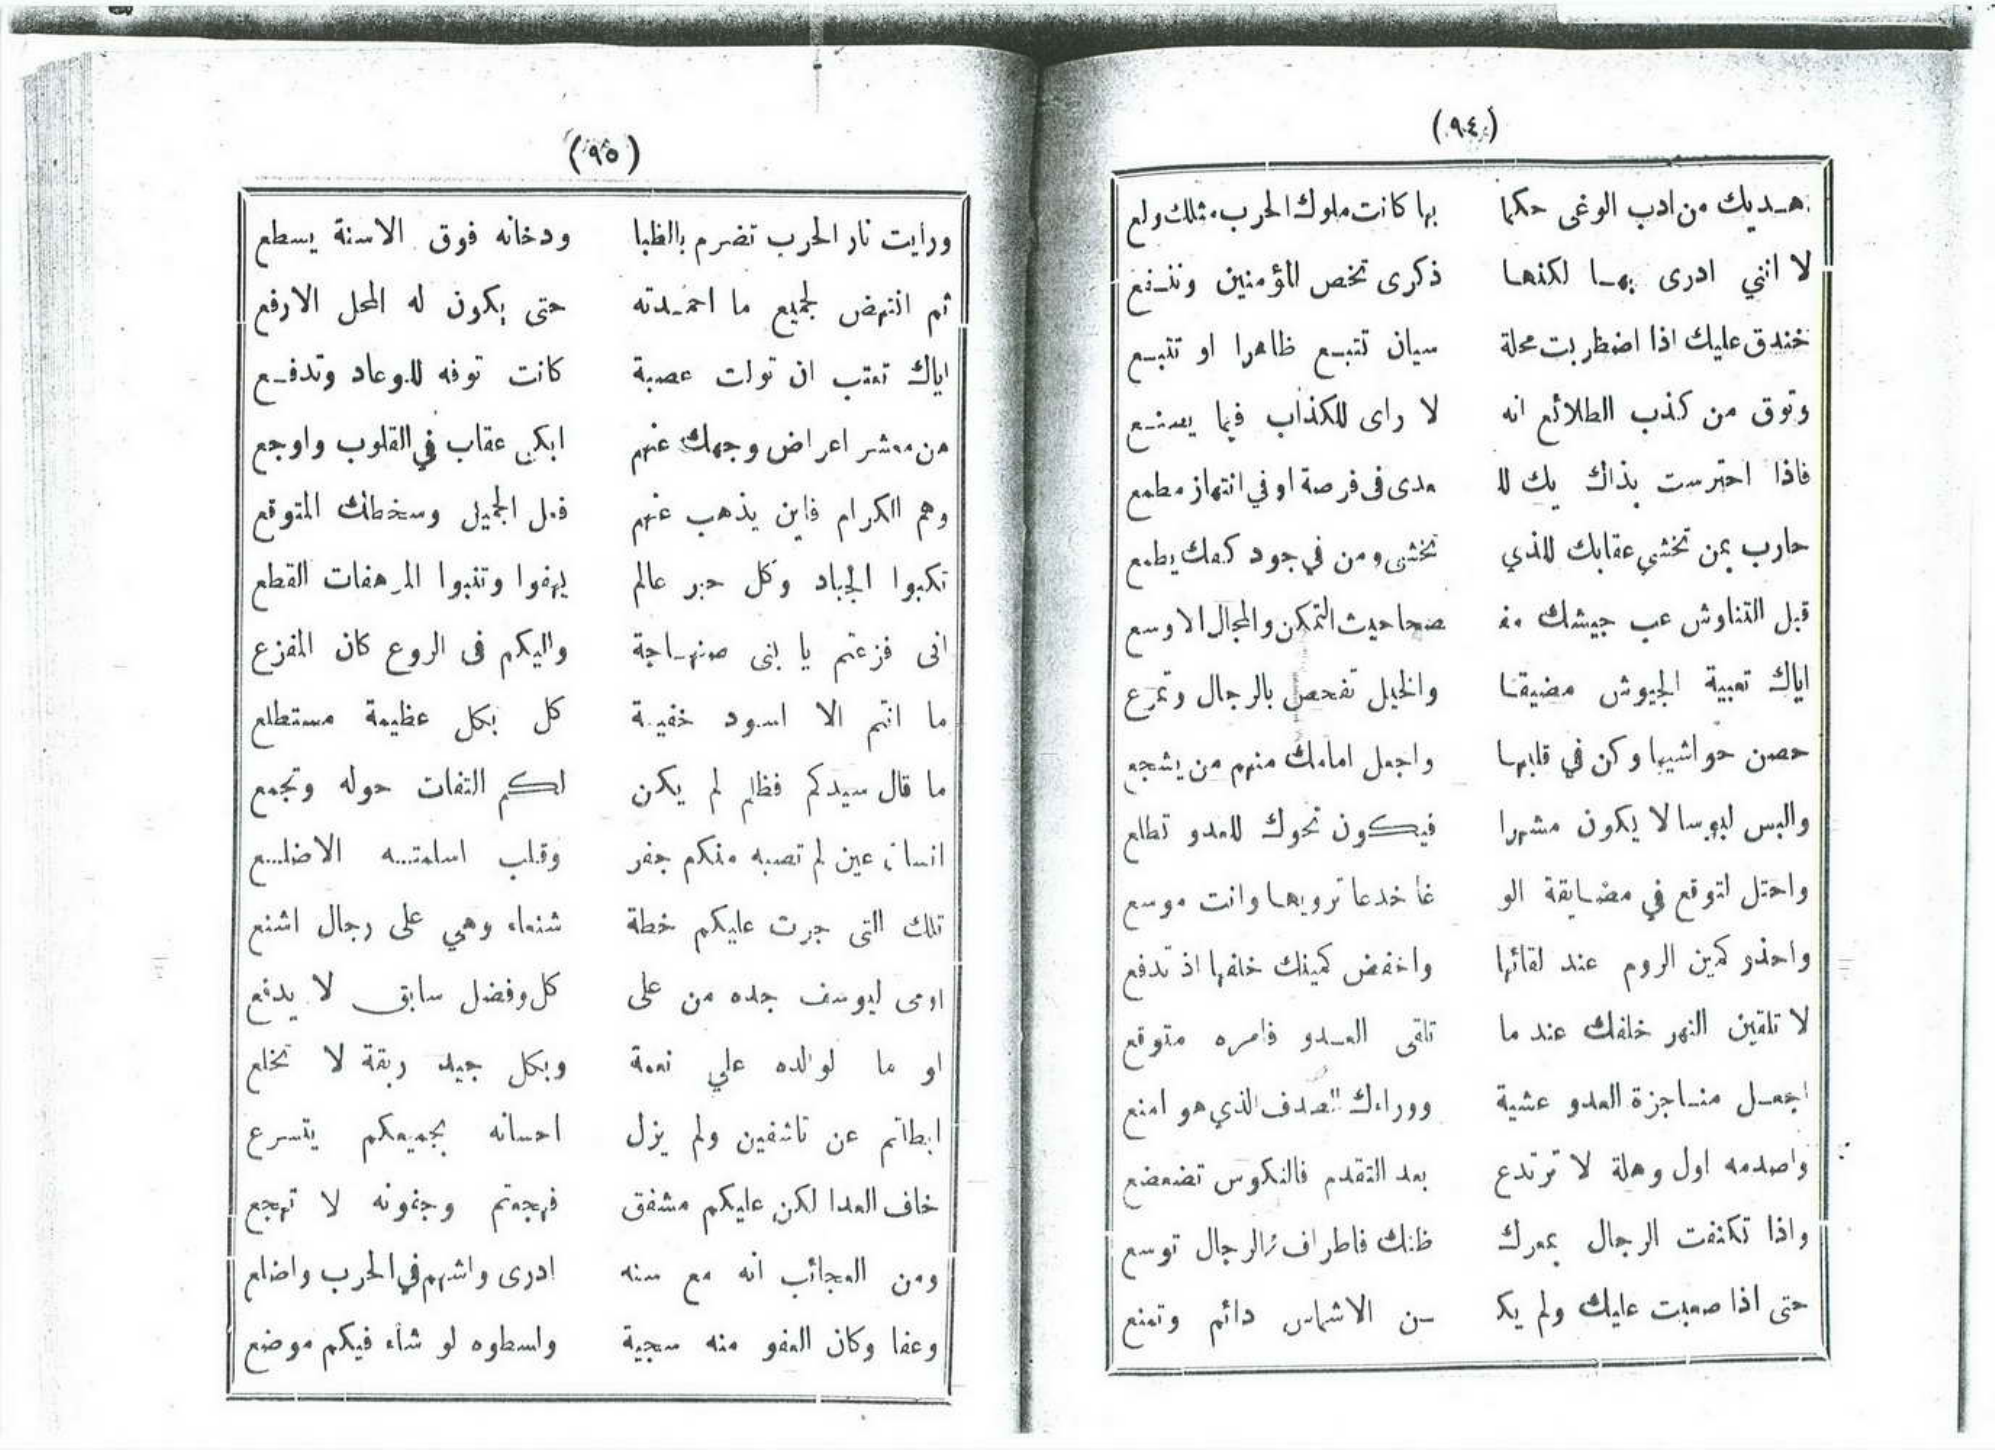 (٩٤)
هـديك من ادب الوغى حكما بها كانت ملوك الحرب مثلك ولع
لا انني ادرى بهـا لكنهـا ذكرى تخص المؤمنين وتنـفع
خندق عليك اذا اضطربت محلة سيان تتبـع ظاهرا او تتبـع
وتوق من كذب الطلائع انه لا راى للكذاب فيما يصنـع
فاذا احترست بذاك يك للـ ـعدى في فرصة او في انتهاز مطمع
حارب بمن تخشي عقابك للذي تخشى ومن في جود كفك يطمع
قبل التناوش عب جيشك مفـ ـصحا حيث التمكن والمجال الاوسع
اياك تعبية الجيوش مضيقـا والخيل تفحص بالرجال وتمرع
حصن حواشيها وكن في قلبهـا واجعل امامك منهم من يشجع
والبس لبوسا لا يكون مشهرا فيكون نحوك للعدو تطلع
واحتل لتوقع في مضـايقة الو غا خدعا ترويهـا وانت موسع
واحذو كمين الروم عند لقائها واخفض كمينك خلفها اذ تدفع
لا تلقين النهر خلفك عند ما تلقى العـدو فامره متوقع
اجعـل منـاجزة العدو عشية ووراءك الصدف الذي هو امنع
واصدمه اول وهلة لا ترتدع بعد التقدم فالنكوس تضعضع
واذا تكنفت الرجال بمعرك ظنك فاطراف الرجال توسع
حتى اذا صعبت عليك ولم يكـ ـن الا شماس دائم وتمنع
(٩٥)
ورايت نار الحرب تضرم بالظبا ودخانه فوق الاسنة يسطع
ثم انتهض لجميع ما احمـدته حتى يكون له المحل الارفع
اياك تعتب ان تولت عصبة كانت توفه للوعاد وتدفـع
من معشر اعراض وجهك عنهم ابكى عقاب في القلوب واوجع
وهم الكرام فاين يذهب عنهم فعل الجميل وسخطك المتوقع
تكبوا الجياد وكل حبر عالم يهفوا وتنبوا المرهفات القطع
انى فزعتم يا بنى صنهـاجة واليكم فى الروع كان المفزع
ما انتم الا اسود خفيـة كل بكل عظيمة مستطلع
ما قال سيدكم فظلم لم يكن لكـم التفات حوله وتجمع
انسان عين لم تصبه منكم جفر وقلب اسلمتـه الاضلـع
تلك التى جرت عليكم خطة شنعاء وهي على رجال اشنع
اومى ليوسف جده من على كل وفضل سابق لا يدفع
او ما لوالده علي نعمة وبكل جيد ربقة لا تخلع
ابطاتم عن تاشفين ولم يزل احسانه بجميعكم يتسرع
خاف العدا لكن عليكم مشفق فهجعتم وجفونه لا تهجع
ومن العجائب انه مع سنه ادرى واشهم في الحرب واضلع
وعفا وكان العفو منه سجية واسطوه لو شاء فيكم موضع